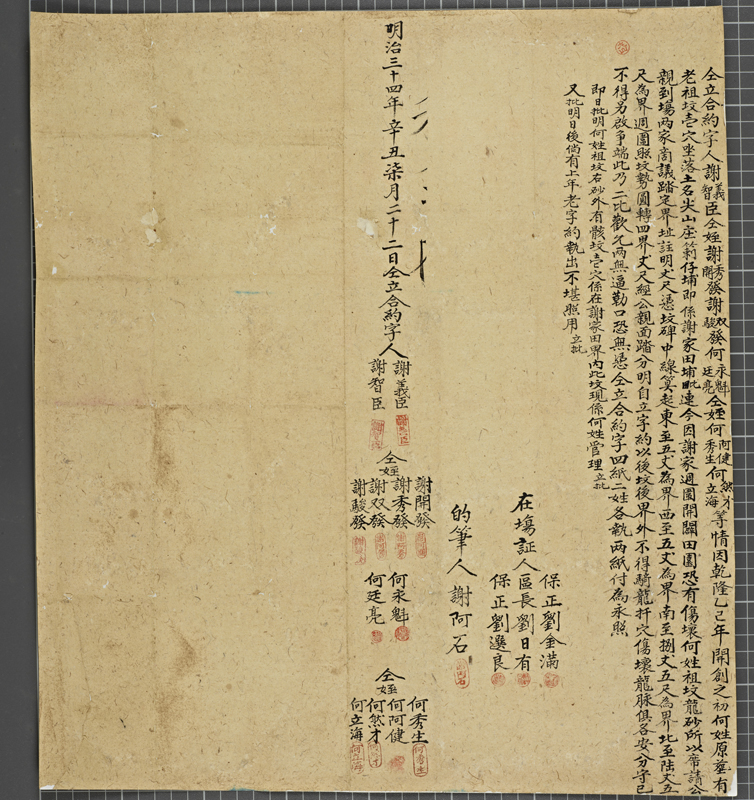 仝立合約字人謝義智臣仝姪謝秀開發謝双駿發何永魁廷亮仝姪何阿健秀生何然才立海等情因乾隆乙己年開創之初何姓原塋有
老祖坟壹穴坐落土名尖山庄箣仔埔即係謝家田埔毗連今因謝家週圍開闢田園恐有傷壞何姓祖坟龍砂所以席請公
親到塲两家啇議踏定界址註明丈尺憑坟碑中線筭起東至五丈為界西至五丈為界南至捌丈五尺為界北至陆丈五
尺為界週圍照坟勢圓轉四界丈尺經公親面踏分明自立字約以後坟後界外不得騎龍扦穴傷壞龍脉俱各安分守己
不得另啟争端此乃二比歡允两無逼勒口恐無憑仝立合約字四紙二姓各執两紙付為永照
即日批明何姓祖坟右砂外有骸坟壹穴係在謝家田界内此坟現係何姓管理立批
又批明日後倘有上年老字約執出不堪照用立批
保正劉金滿
在塲証人區長劉日有
保正劉選良
的筆人謝阿石
明治三十四年辛丑柒月二十二日仝立合約字人
謝義臣
謝智臣
仝姪
謝開發
謝秀發
謝双發
謝駿發
何永魁
何廷亮
仝姪
何秀生
何阿健
何然才
何立海